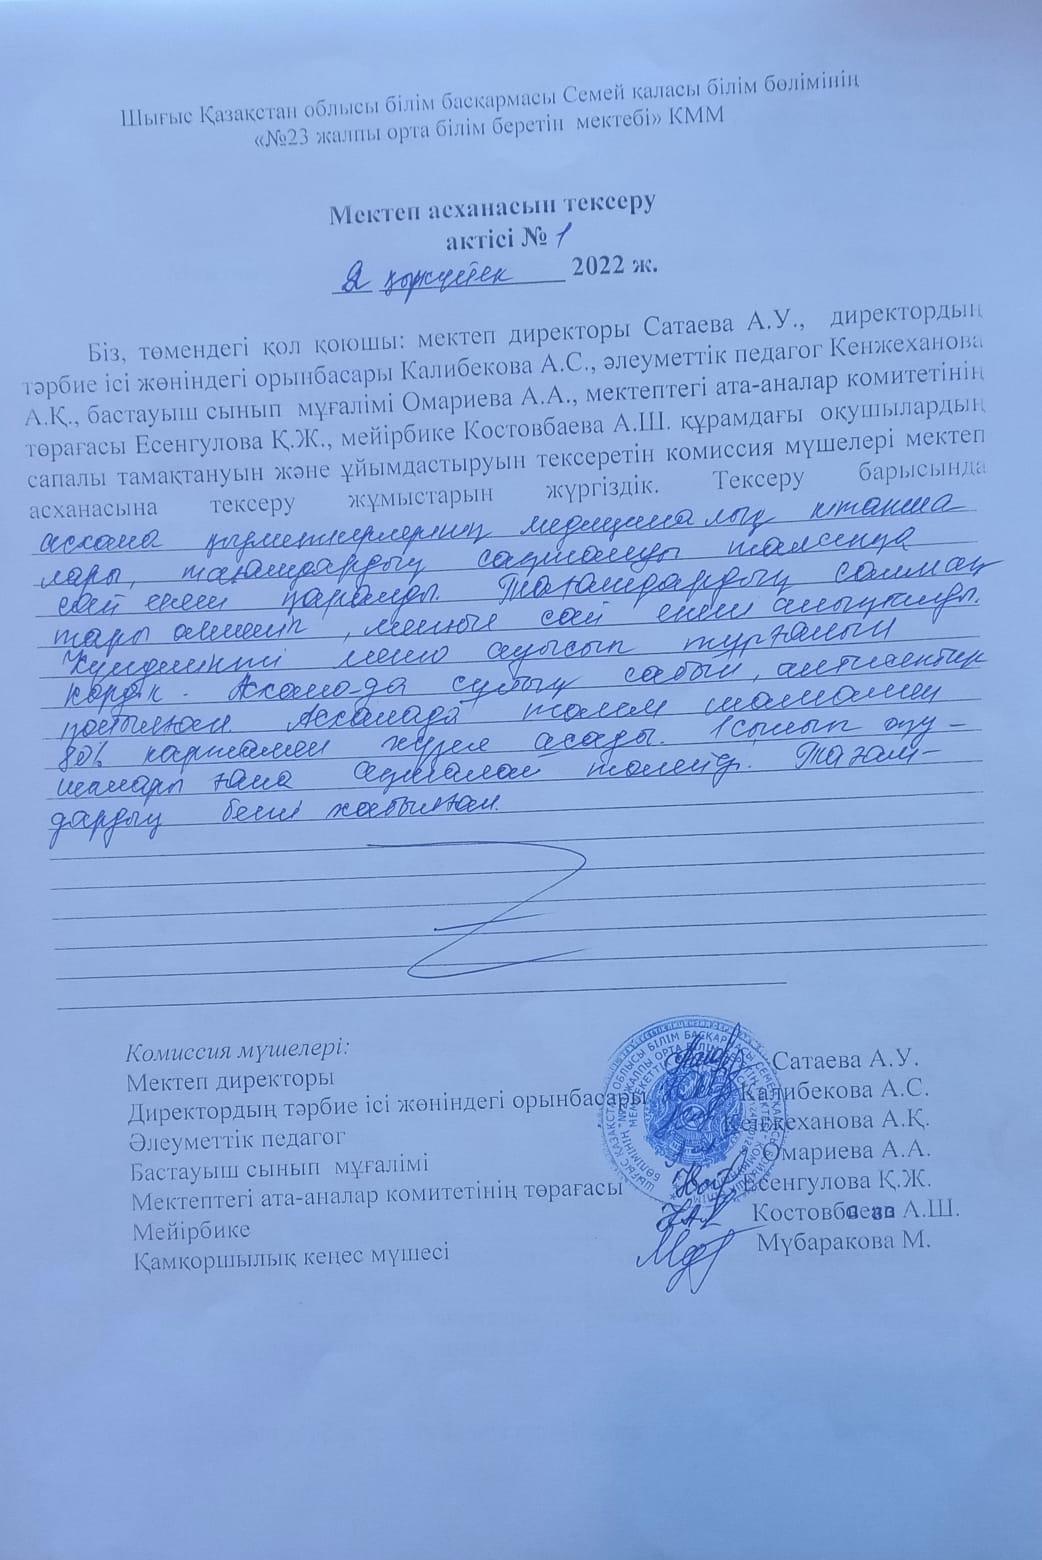 Шығыс Қазақстан облысы білім басқармасы Семей қаласы білім бөлімінің
«№23 жалпы орта білім беретін мектебі» КММ
Мектеп асханасын тексеру
актісі № 1
2 қыркүйек 2022 ж.
Біз, төмендегі қол қоюшы: мектеп директоры Сатаева А.У., директордың
тәрбие ісі жөніндегі орынбасары Калибекова А.С., әлеуметтік педагог Кенжеханова
А.Қ., бастауыш сынып мұғалімі Омариева А.А., мектептегі ата-аналар комитетінің
төрағасы Есенгулова Қ.Ж., мейірбике Костовбаева А.Ш. құрамдағы оқушылардың
сапалы тамақтануын және ұйымдастыруын тексеретін комиссия мүшелері мектеп
асханасына тексеру жұмыстарын жүргіздік. Тексеру барысында
асхана қызметкерлерінің медициналық кітапша
лары, тағамдардың сақталуы талапқа
сай екені қаралды. Тағамдардың салмақ
тары өлшеніп, менюге сай екені анықталды.
Күнделікті меню ауысып тұрғанын
көрдік. Асханада сұйық сабын, антисептик
қойылған. Асханада төлем шамамен
80% картамен жүзеге асады. 1 сынып оқу –
шылары ғана ақшалай төлейді. Тағам–
дардың беті жабылған.
Комиссия мүшелері:
Мектеп директоры Сатаева А.У.
Директордың тәрбие ісі жөніндегі орынбасары Калибекова А.С.
Әлеуметтік педагог Кенжеханова А.Қ.
Бастауыш сынып мұғалімі Омариева А.А.
Мектептегі ата-аналар комитетінің төрағасы Есенгулова Қ.Ж.
Мейірбике Костовбаева А.Ш.
Қамқоршылық кеңес мүшесі Мүбаракова М.